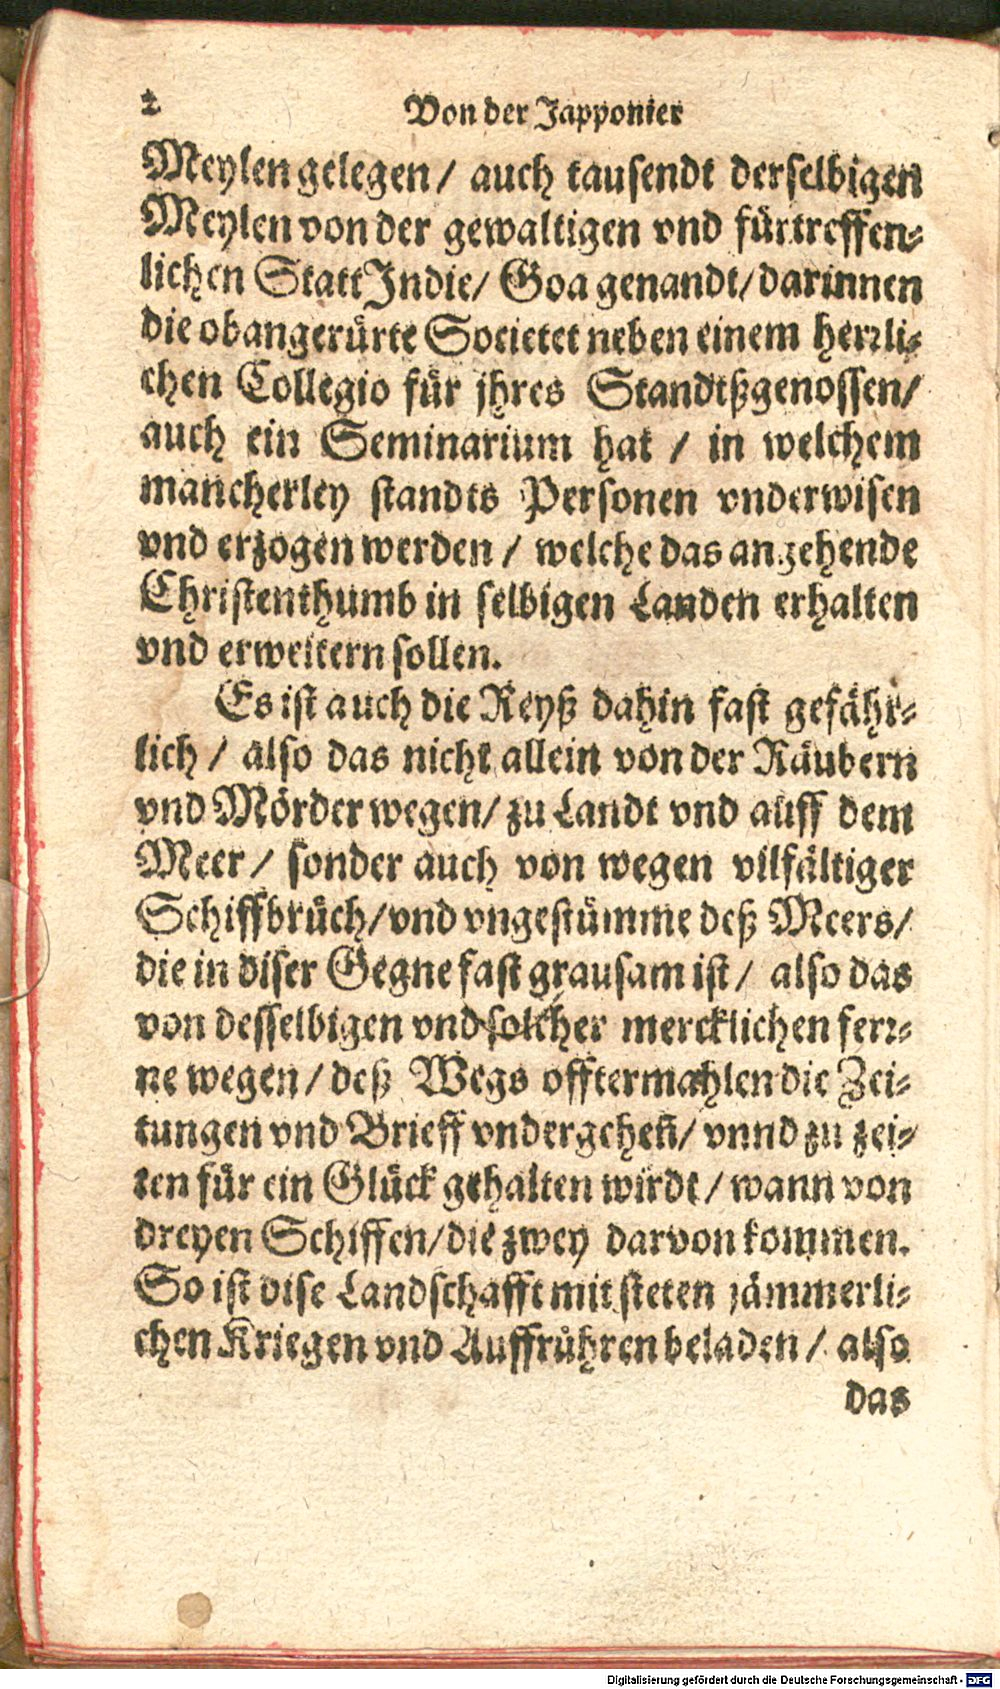 2 Von der Japponier
Meylen gelegen / auch tausendt derselbigen
Meylen von der gewaltigen vnd fürtreffen-
lichen Statt Indie / Goa genandt / darinnen
die obangerürte Societet neben einem herꝛli-
chen Collegio für jhres Standtßgenossen /
auch ein Seminarium hat / in welchem
mancherley standts Personen vnderwisen
vnd erzogen werden / welche das angehende
Christenthumb in selbigen Landen erhalten
vnd erweitern sollen.
Es ist auch die Reyß dahin fast gefähr-
lich / also das nicht allein von der Räubern
vnd Mörder wegen / zu Landt vnd auff dem
Meer / sonder auch von wegen vilfältiger
Schiffbrüch / vnd vngestümme deß Meers /
die in diser Gegne fast grausam ist / also das
von desselbigen vnd solcher mercklichen ferꝛ-
ne wegen / deß Wegs offtermahlen die Zei-
tungen vnd Brieff vndergehen̄ / vnnd zu zei-
ten für ein Glück gehalten wirdt / wann von
dreyen Schiffen / die zwey darvon kommen.
So ist dise Landschafft mit steten jämmerli-
chen Kriegen vnd Auffrühren beladen / also
das
Digitalisierung gefördert durch die Deutsche Forschungsgemeinschaft - DFG